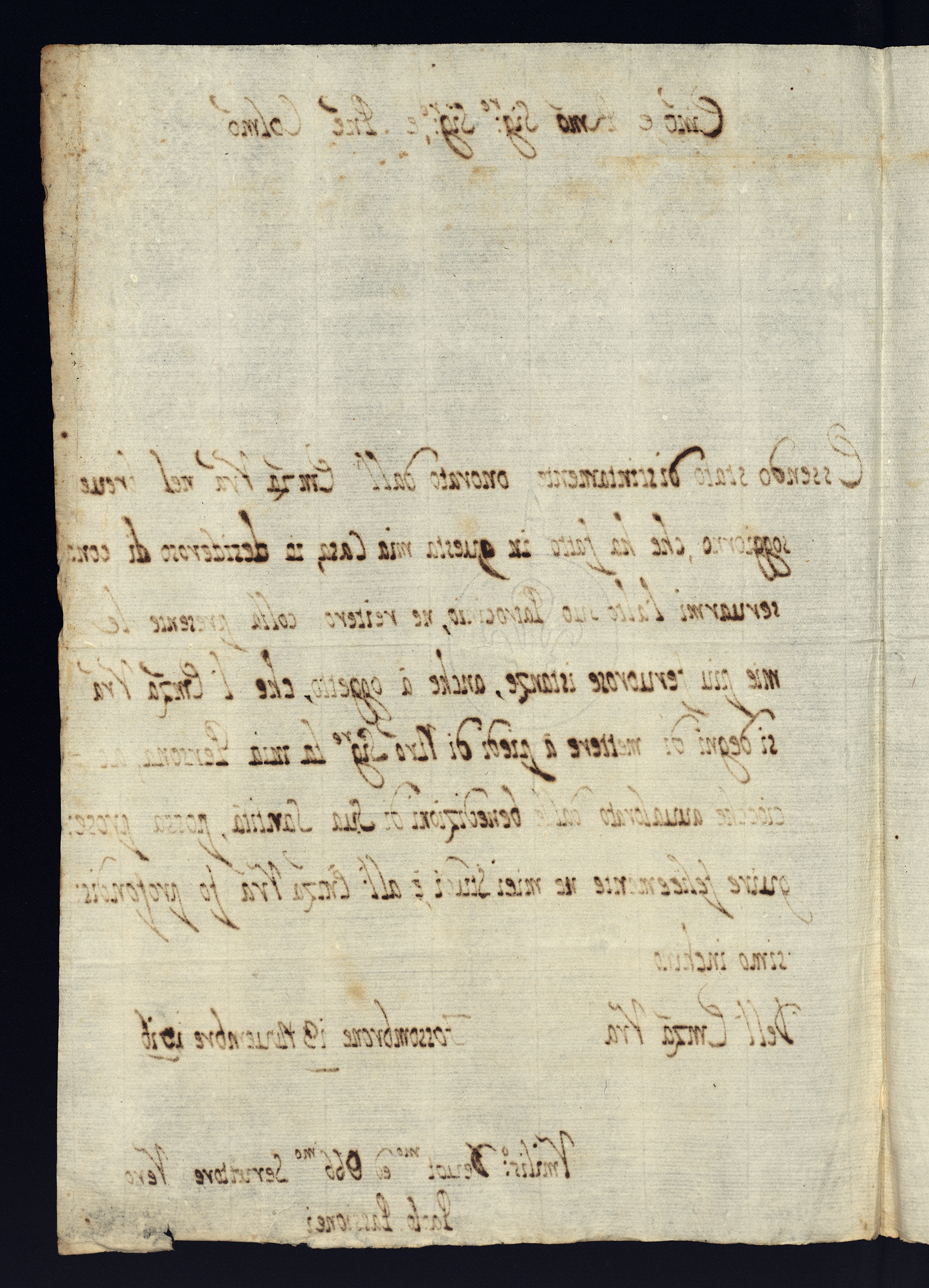 Emõ, e Rmõ Sig.re Sig.re, e Pnẽ Colmõ
Essendo stato distintamente onorato dall' Emzã Vrã nel breue
soggiorno, che ha fatto in questa mia Casa, e desideroso di con
seruarmi l'alto suo Patrocinio, ne reitero colla presente le
mie piu feruorose istanze, anche à oggetto, che l' Emzã Vrã
si degni di mettere à piedi di Nrõ Sig.re la mia Persona, ac
ciocche aualorato dalle benedizioni di Sua Santità, possa prose:
guire felicemente ne miei Studi, è all' Emzã Vrã fo profondis:
simo inchino
Dell' Emzã Vrã Fossombrone 19 Nouembre
Vmilis.o Deuot.mo ed Obb.mo Seruitore Vero
Paolo Passionei